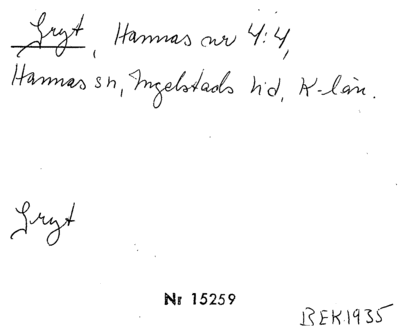 Gryt, Hannas nr 4:4,
Hannas sn, Ingelstads hd, K-län.
Gryt
Nr 15259
BEK1935